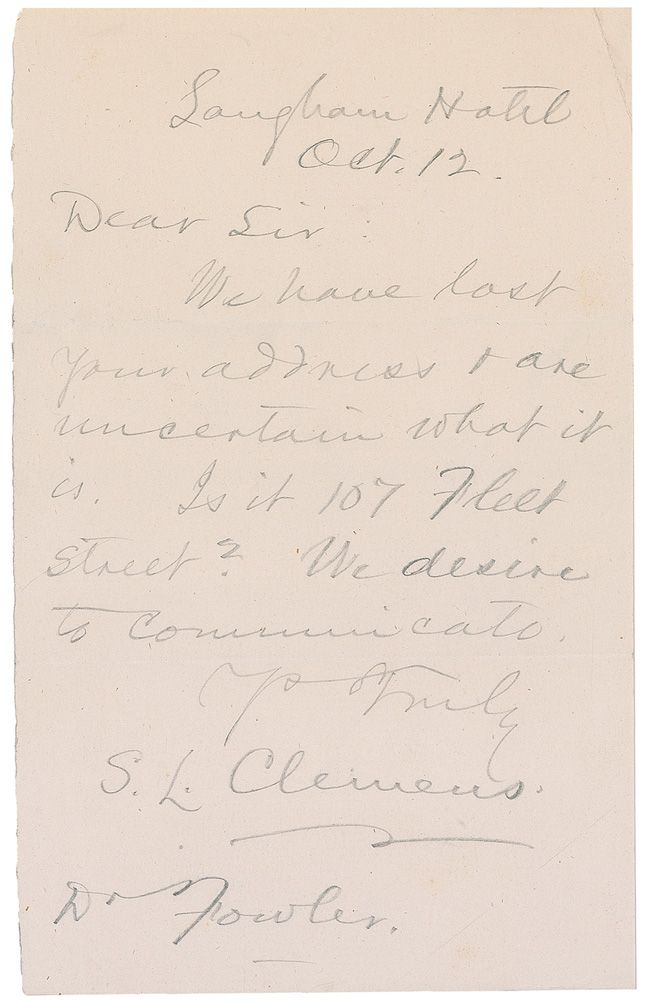 Langham Hotel
Oct. 12.
Dear Sir:
We have lost
your address & are
uncertain what it
is. Is it 107 Fleet
street? We desire
to communicate.
Ys Truly
S. L. Clemens.
Dr Fowler.